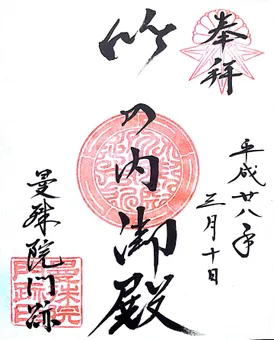 奉拝
平成廿八年
三月十日
竹の内御殿
曼殊院門跡
曼殊院
門跡印